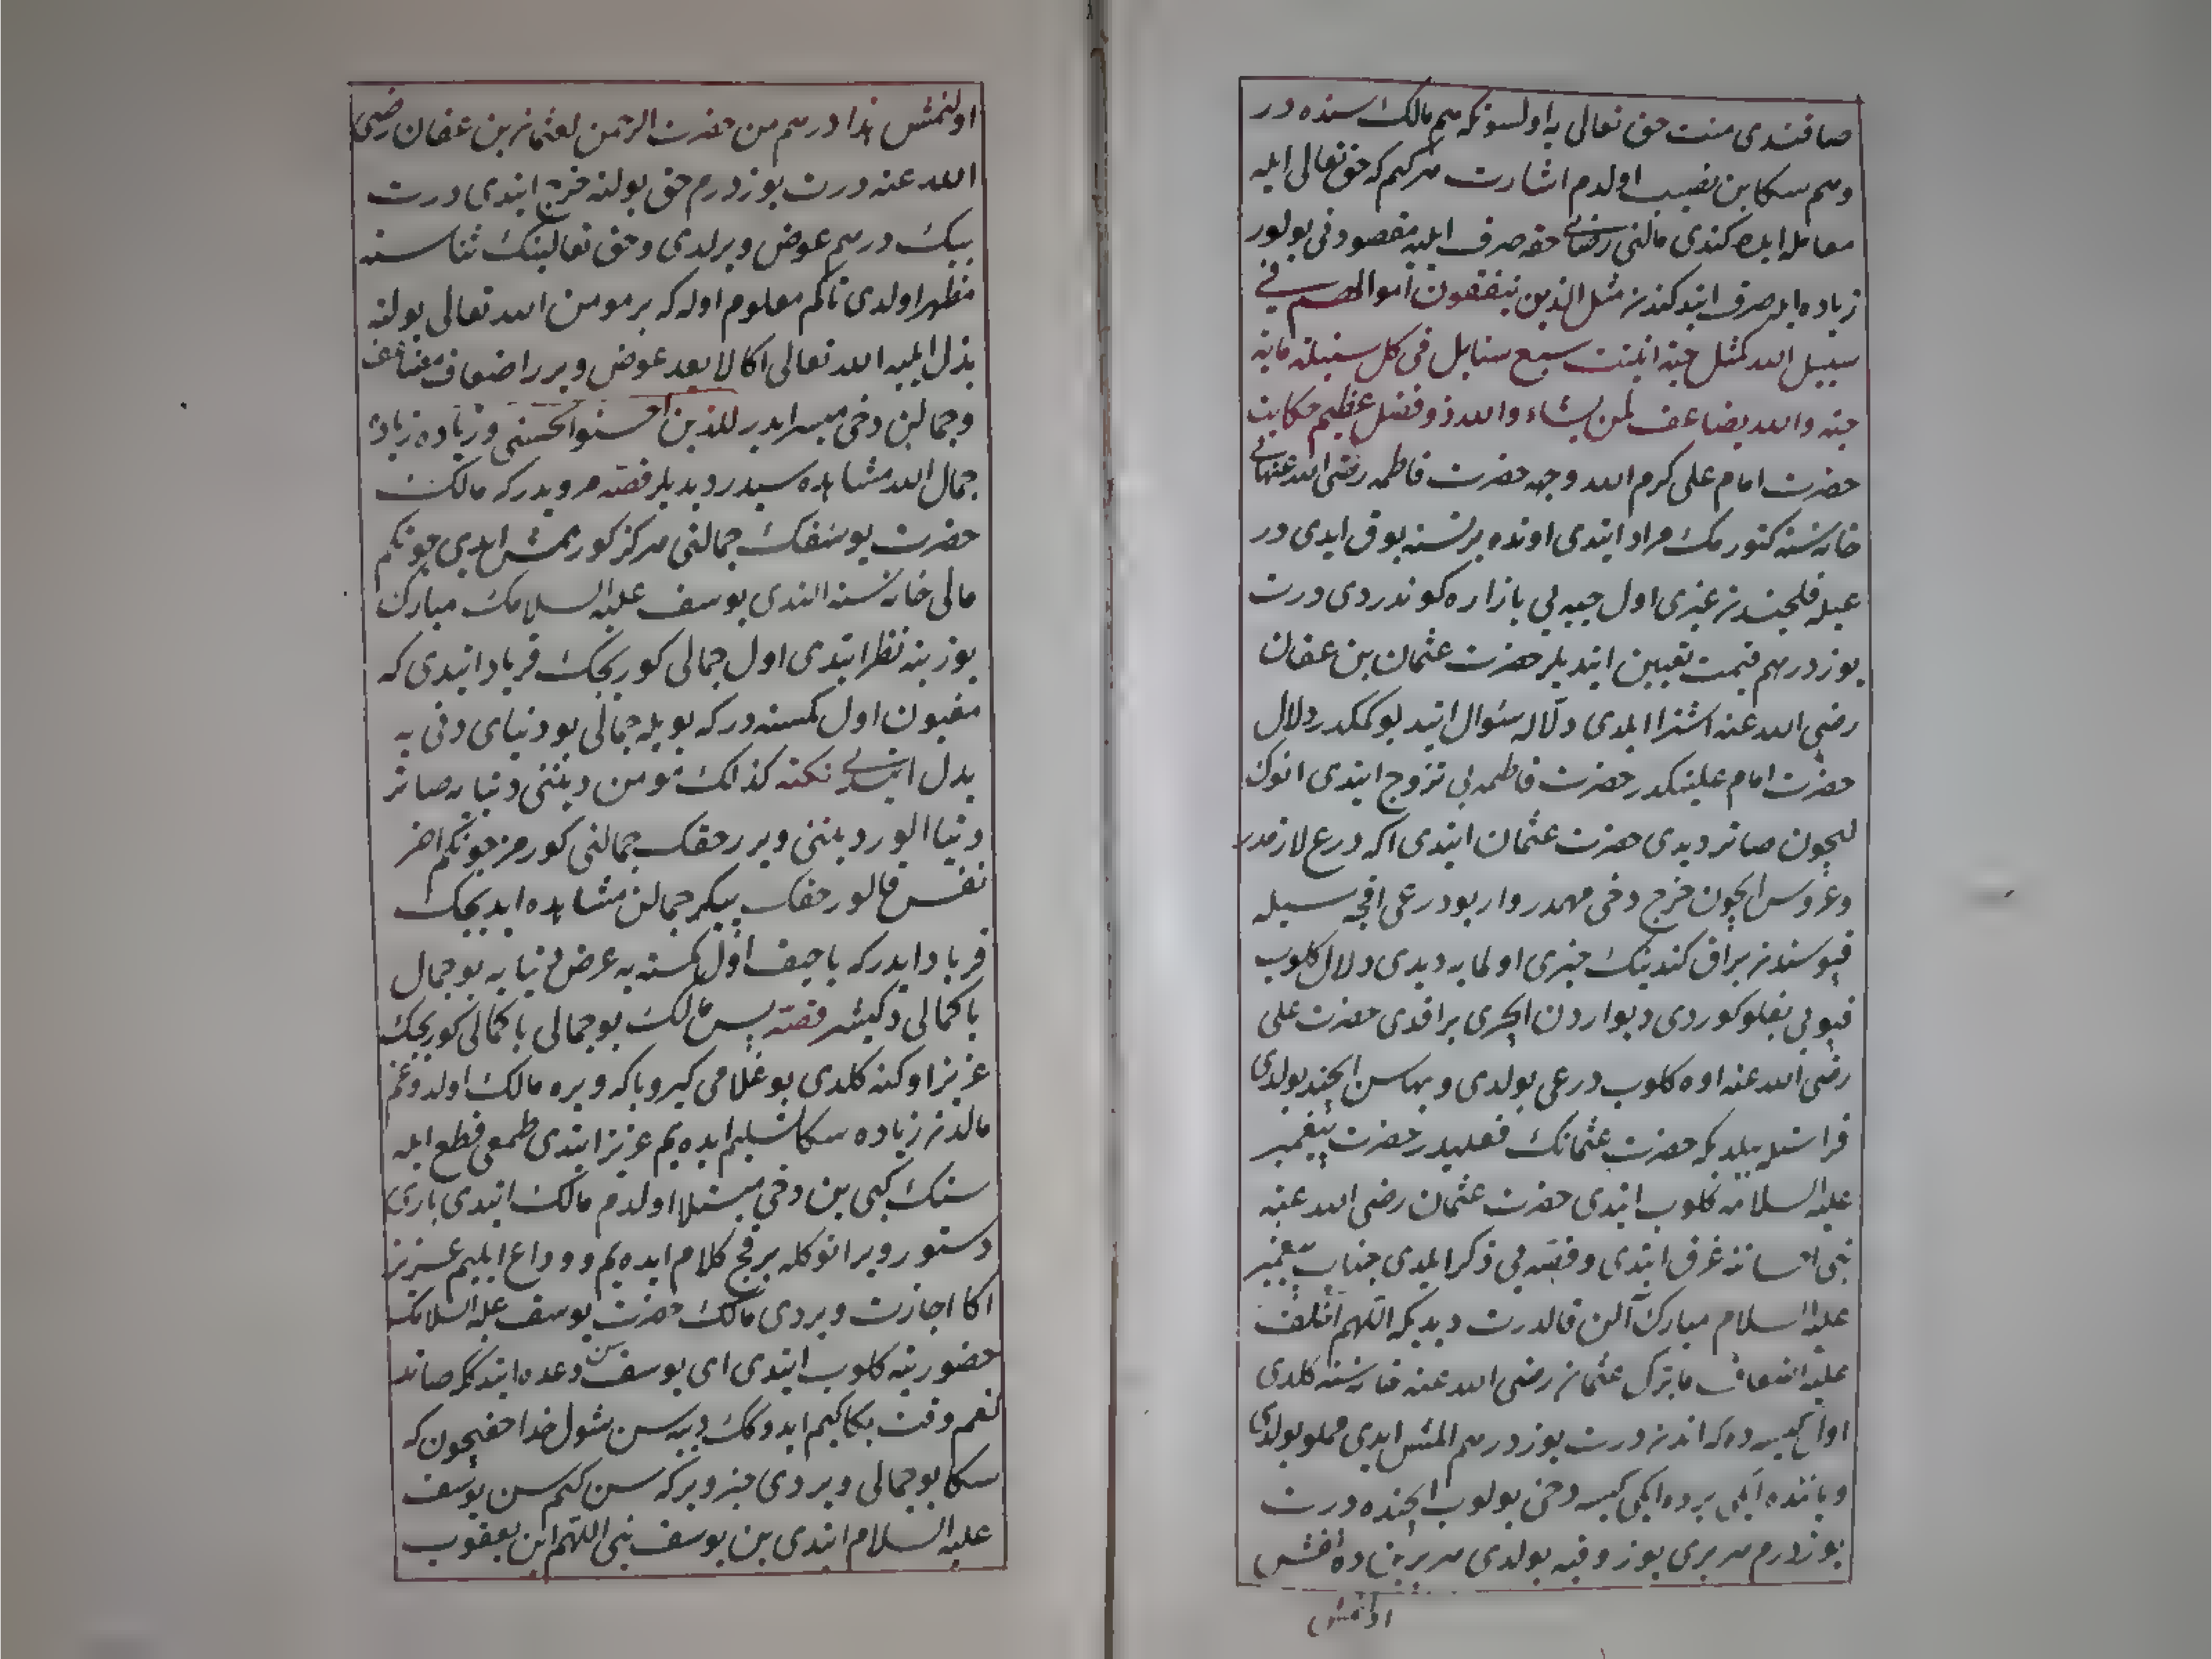 صاتندی منت حق تعالی یه اولسونکه هم مالک اسنده در
وهم سکا بن نصیب اولدم اشارت هر کیم که حق تعالی ایله
معامله ایده کندی مالنی حقه صرف ایلیه مقصودنی بولور
زیاده ایله صرف ایتدکندن مثل الذین ینفقون أموالهم فی
سبیل الله کمثل حبة انبتت سبع سنابل فی کل سنبلة مایة
حبة والله یضاعف لمن یشاء والله ذو فضل عظیم حکایت
حضرت امام علی کرم الله وجهه حضرت فاطمه رضی الله عنهایی
خانه سنه کتورمک مراد ایتدی اونده برنسنه یوق ایدی در
عیله قلجندن غیری اول جبه یی بازاره کوندردی درت
یوز درهم قیمت تعیین ایتدیلر حضرت عثمان بن عفان
رضی الله عنه اشترا ایلدی دلاله سئوال ایتدی بو کمکدر دلال
حضرت امام علینکدر حضرت فاطمه یی تزوج ایتدی انوک
ایچون صاتر دیدی حضرت عثمان ایتدی اکه درع لازمدر
وعروس ایچون خرج دخی مهمدر وار بو درعی اقچه سیله
قپوسندن براق کندینک خبری اولمایه دیدی دلال کلوب
قپویی بغلو کوردی دیواردن ایچری براقدی حضرت علی
رضی الله عنه اوه کلوب درعی بولدی وبهاسن ایچنده بولدی
فراستله بیلدیکه حضرت عثمانک فعلیدر حضرت پیغمبر
علیه السلامه کلوب ایتدی حضرت عثمان رضی الله عنه
بنی احساننه غرق ایتدی وقصه یی ذکر ایلدی جناب پیغمبر
علیه السلام مبارک الن قالدرت دیدیکه اللهم
علیه اضعاف ما ترک عثمان رضی الله عنه خانه سنه کلدی
اول کیسه ده که اندن درت یوز درهم المش ایدی مملو بولدی
ویاننده ایکی برده ایکی کیسه دخی بولوب ایچنده درت
یوز درم هر بری یوز وقیه بولدی هر برینده نقش
اولنمش
اولنمش هذا درهم من حضرت الرحمن لعثمان بن عفان رضی
الله عنه درت یوز درم حق یولنه خرج ایتدی درت
بیک درهم عوض ویرلدی وحق تعالینک ثناسنه
مظهر اولدی تاکم معلوم اوله که بر مومن الله تعالی یولنه
بذل ایلیه الله تعالی اکا لا بعد عوض ویرر اضعاف مضاعف
وجمالن دخی میسر ایدر للذین احسنوا الحسنی وزیاده زیاده
جمال الله مشاهده سیدر دیدیلر قصه مرویدر که مالک
حضرت یوسفک جمالنی هرکز کورممش ایدی چونکم
مالی خانه سنه الندی یوسف علیه السلامک مبارک
یوزینه نظر ایتدی اول جمالی کوریجک فریاد ایتدی که
مغبون اول کمسنه در که بویله جمالی بو دنیای دنی یه
بدل نکته کذلک مومن دیننی دنیایه صاتر
دنیا الور دیننی ویرر حقک جمالنی کورمز چونکم اخر
نفس قالور حقک پیکر جمالن مشاهده ایدیجک
فریاد ایدر که یا حیف اول کمسنه یه عرض دنیایه بو جمال
با کمالی دکیشر قصه پس مالک بو جمالی با کمالی کوریجک
عزیز اوکنه کلدی بو غلامی کیرو باکه ویره مالک اولدوغم
مالدن زیاده سکا تسلیم ایده یم عزیز ایتدی طمعی قطع ایله
سنک کبی بن دخی مبتلا اولدم مالک ایتدی باری
دستور ویر انوکله بر قچ کلام ایده یم وو داع ایلیم عزیز
اکا اجازت ویردی مالک حضرت یوسف علیه السلامک
حضورینه کلوب ایتدی ای یوسف سن وعده ایتدککم صاتد
وقت بکا کیم ایدوکک دیه سن شول خدا حقیچون که
سکا بو جمالی ویردی خبر ویر که سن کیم سن یوسف
علیه السلام ایتدی بن یوسف نبی اللهم ابن یعقوب